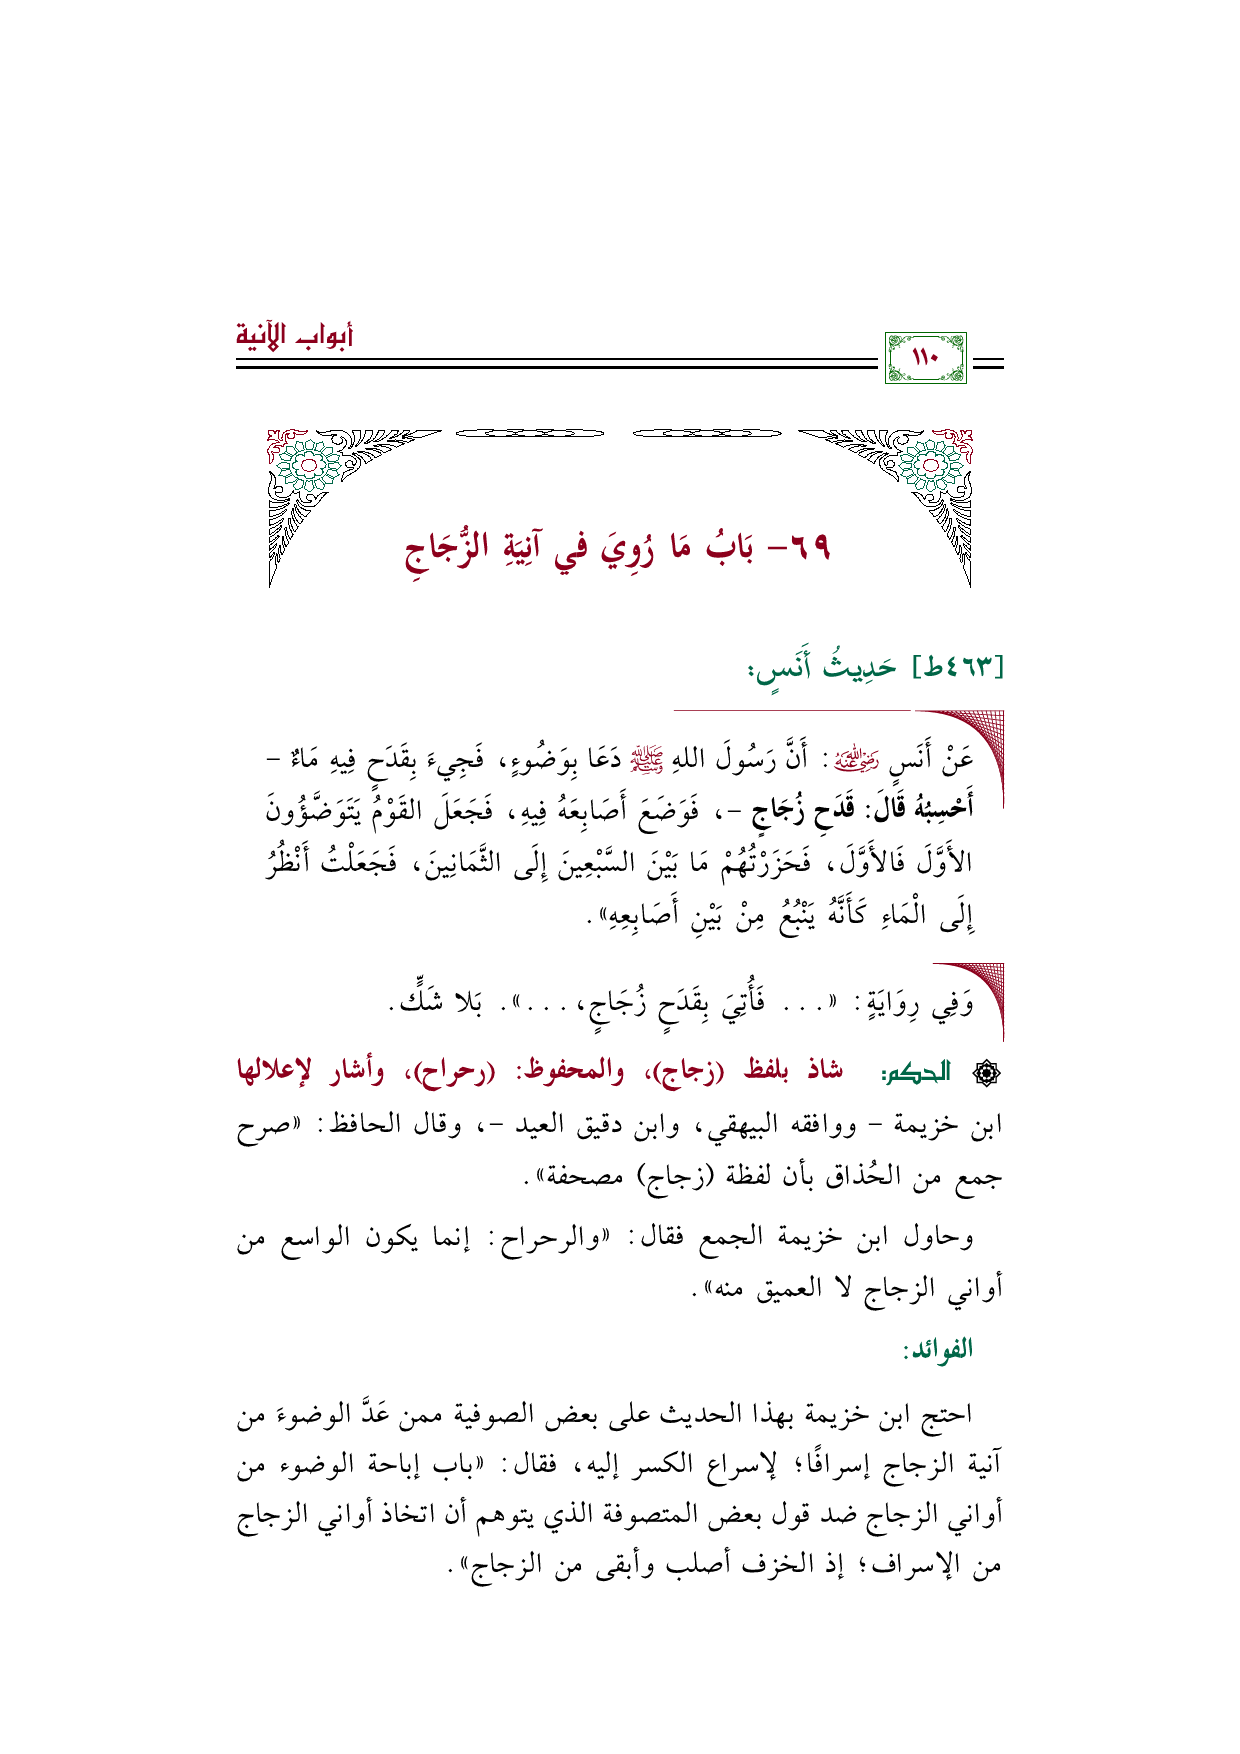 أبواب الآنية
١١٠
٦٩- بَابُ مَا رُوِيَ في آنِيَةِ الزُّجَاجِ
[٤٦٣ط] حَدِيثُ أَنَسٍ:
عَنْ أَنَسٍ رضي الله عنه: أَنَّ رَسُولَ اللهِ ﷺ دَعَا بِوَضُوءٍ، فَجِيءَ بِقَدَحٍ فِيهِ مَاءٌ -
أَحْسِبُهُ قَالَ: قَدَحِ زُجَاجٍ -، فَوَضَعَ أَصَابِعَهُ فِيهِ، فَجَعَلَ القَوْمُ يَتَوَضَّؤُونَ
الأَوَّلَ فَالأَوَّلَ، فَحَزَرْتُهُمْ مَا بَيْنَ السَّبْعِينَ إِلَى الثَّمَانِينَ، فَجَعَلْتُ أَنْظُرُ
إِلَى الْمَاءِ كَأَنَّهُ يَنْبُعُ مِنْ بَيْنِ أَصَابِعِهِ».
وَفِي رِوَايَةٍ: «... فَأُتِيَ بِقَدَحٍ زُجَاجٍ،...». بَلا شَكٍّ.
الحكم: شاذ بلفظ (زجاج)، والمحفوظ: (رحراح)، وأشار لإعلالها
ابن خزيمة - ووافقه البيهقي، وابن دقيق العيد -، وقال الحافظ: «صرح
جمع من الحُذاق بأن لفظة (زجاج) مصحفة».
وحاول ابن خزيمة الجمع فقال: «والرحراح: إنما يكون الواسع من
أواني الزجاج لا العميق منه».
الفوائد:
احتج ابن خزيمة بهذا الحديث على بعض الصوفية ممن عَدَّ الوضوءَ من
آنية الزجاج إسرافًا؛ لإسراع الكسر إليه، فقال: «باب إباحة الوضوء من
أواني الزجاج ضد قول بعض المتصوفة الذي يتوهم أن اتخاذ أواني الزجاج
من الإسراف؛ إذ الخزف أصلب وأبقى من الزجاج».